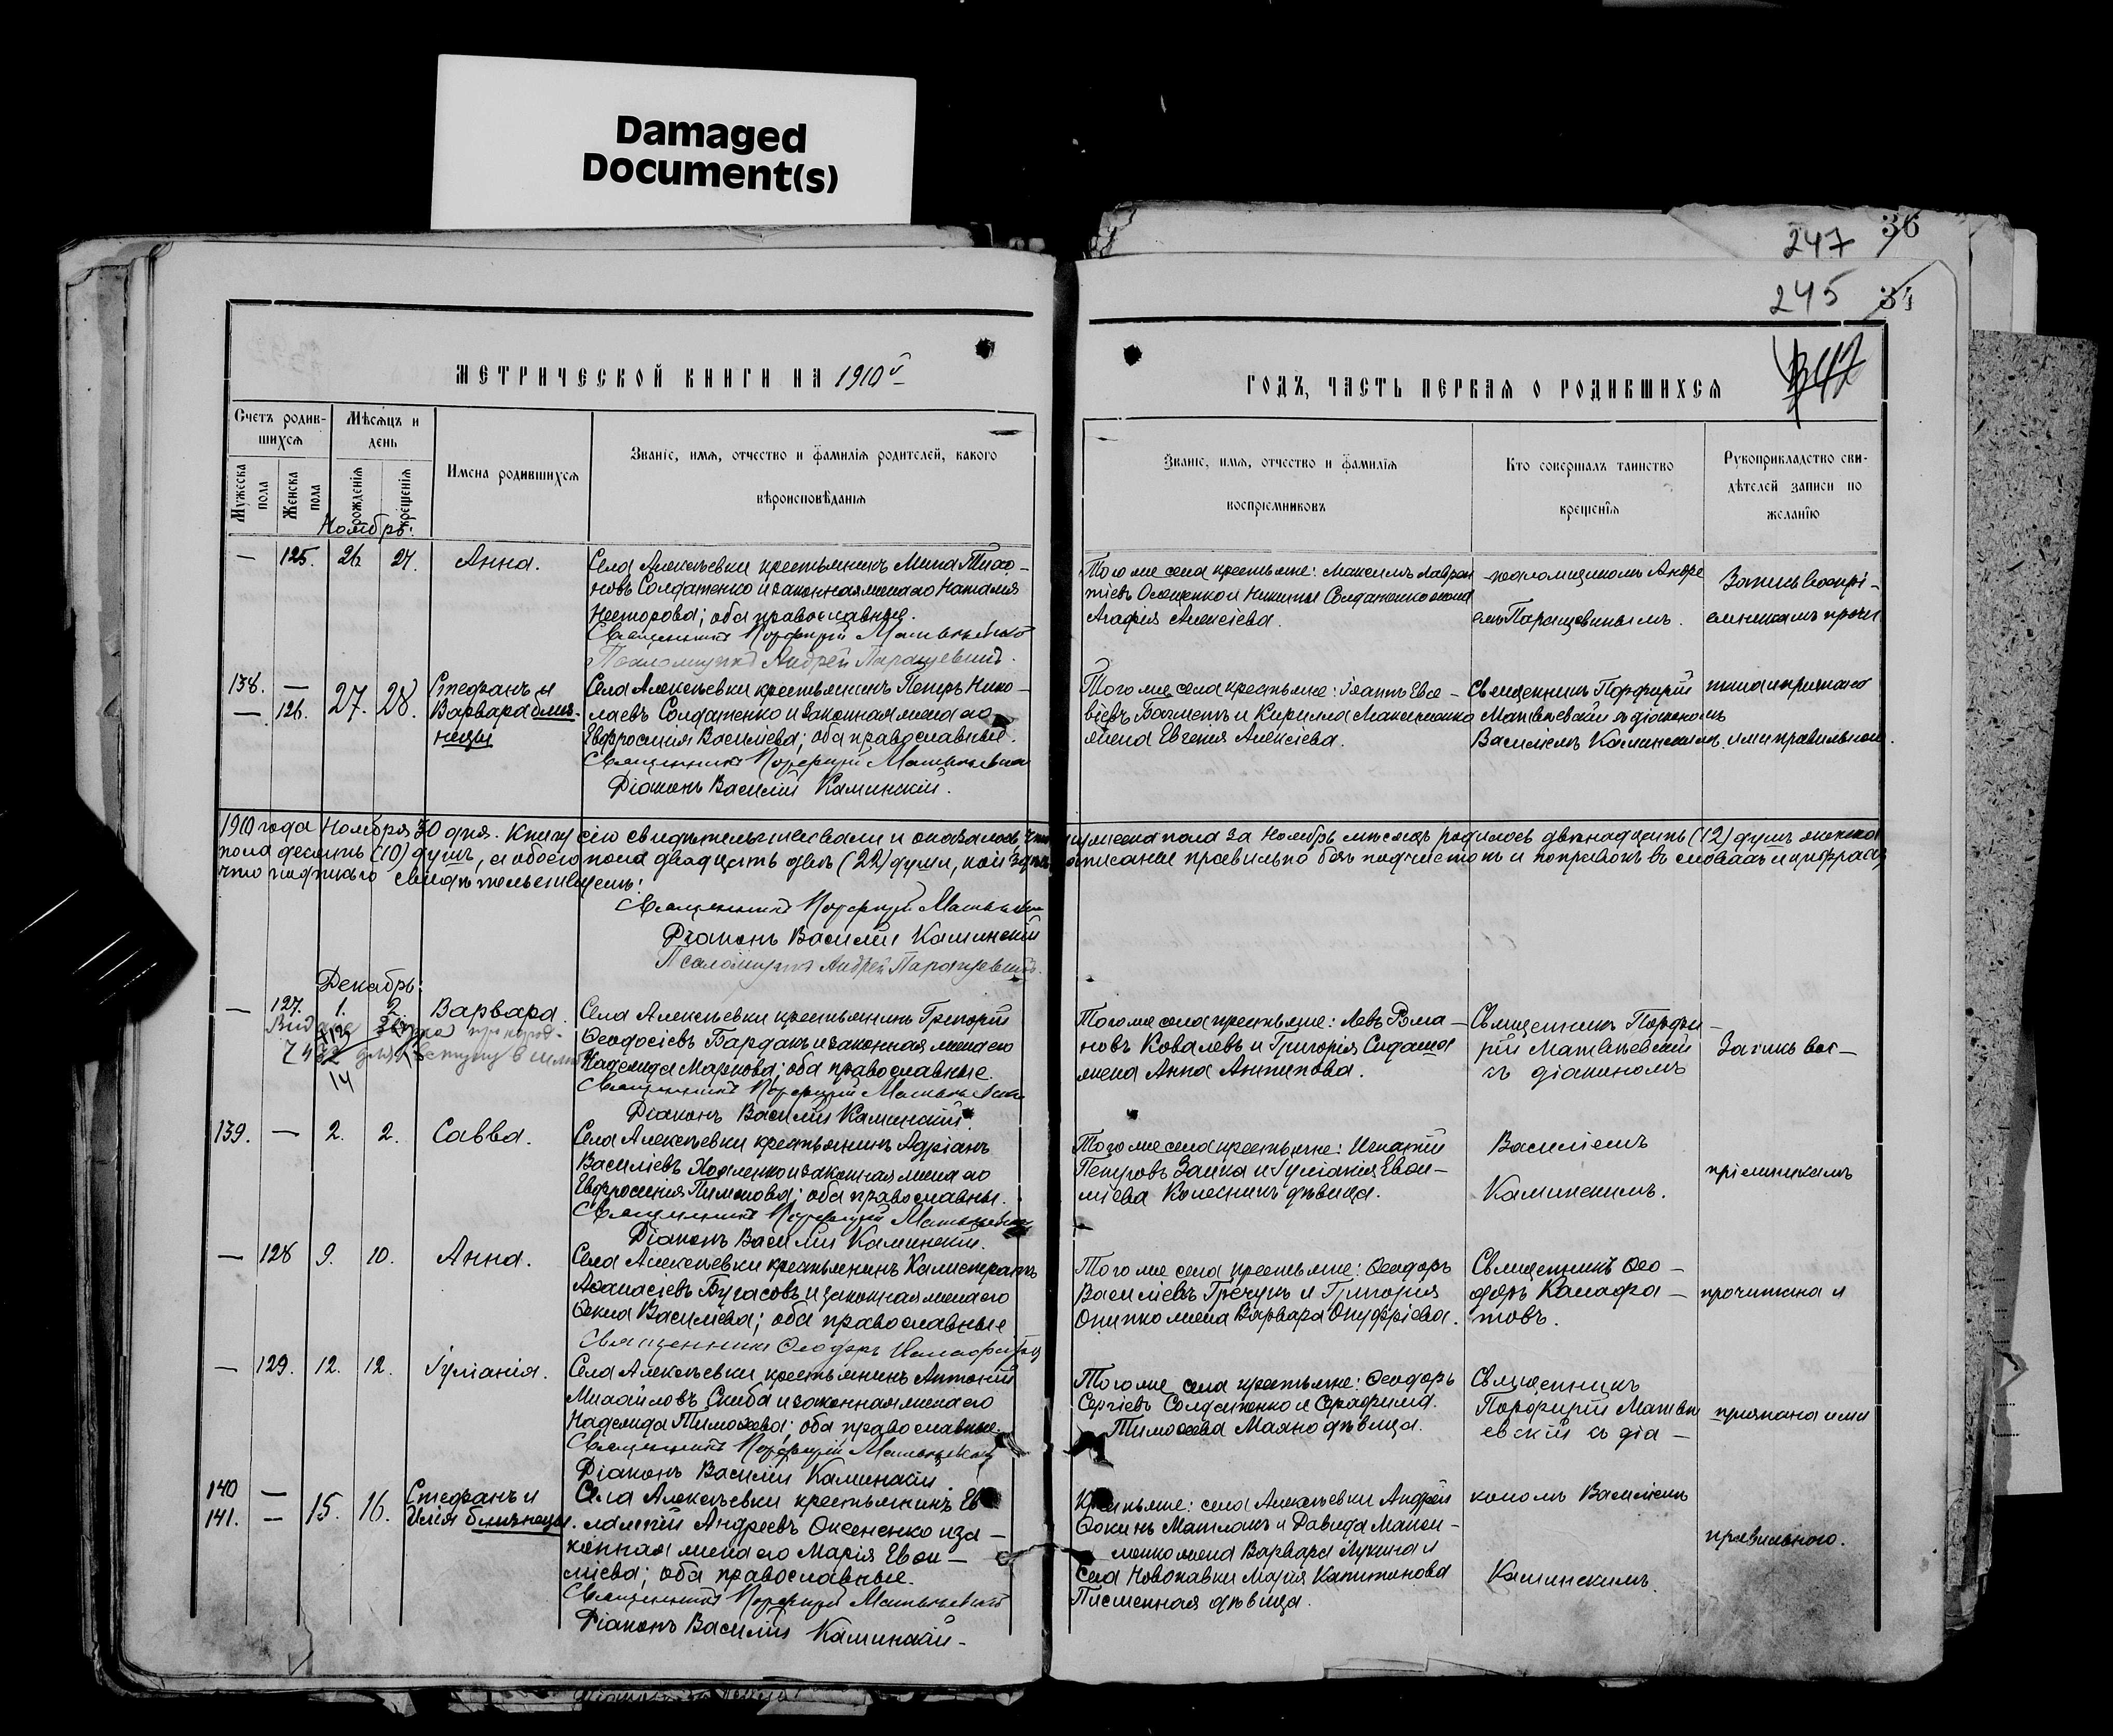 Damaged
Document(s)
36
247
245
34
МЕТРИЧЕСКОЙ КНИГИ НА 1910й
ГОДЪ, ЧАСТЬ ПЕРВАЯ О РОДИВШИХСЯ
Счетъ родив-
шихся
Мѣсяцъ и
день
Мужеска
пола
Женска
пола
рожденія
крещенія
Имена родившихся
Званіе, имя, отчество и фамилія родителей, какого
вѣроисповѣданія
Званіе, имя, отчество и фамилія
воспріемниковъ
Кто совершалъ таинство
крещенія
Рукоприкладство сви-
дѣтелей записи по
желанію
Ноябрь:
— 125. 26 27. Анна.
Села Алексѣевки крестьянинъ Мина Тихо-
новъ Солдатенко и законная жена его Наталія
Несторова; оба православные.
Священникъ Порфирій Матвѣевскій
Псаломщикъ Андрей Паращевинъ.
Того же села крестьяне: Максимъ Лаврен
тіевъ и Никиты Солдатенко жена
Агафія Алексіева.
псаломщикомъ Андре
емъ Паращевинымъ.
Запись воспрі-
емникамъ прочи
138. —
— 126. 27. 28.
Стефанъ и
Варвара близ-
нецы
Села Алексѣевки крестьянинъ Петръ Нико-
лаевъ Солдатенко и законная жена его
Евфросинія Василіева; оба православные.
Священникъ Порфирій Матвѣевскій
Діаконъ Василій Каминскій.
Того же села крестьяне: Іоаннъ Евсе-
віевъ и Кирилла Максименко
жена Евгенія Алексіева.
Священникъ Порфирій
Матвѣевскій съ діакономъ
Василіемъ Каминскимъ
тана и признана
ими правильною.
1910 года Ноября 30 дня. Книгу сію свидѣтельствовали и оказалось, что мужеска пола за Ноябрь мѣсяцъ родилось двѣнадцать (12) душъ женска
пола десять (10) душъ, а обоего пола двадцать двѣ (22) души, кои записаны правильно безъ подчистокъ и поправокъ въ словахъ и цифрахъ,
что подписью свидѣтельствуемъ:
Священникъ Порфирій Матвѣевскій
Діаконъ Василій Каминскій
Псаломщикъ Андрей Паращевинъ.
Декабрь:
— 127. 1. 2. Варвара.
14
Села Алексѣевки крестьянинъ Григорій
Ѳеодосіевъ Бардакъ и законная жена его
Надежда Маркова; оба православные.
Священникъ Порфирій Матвѣевскій
Діаконъ Василій Каминскій.
Того же села крестьяне: Левъ Рома-
новъ Ковалевъ и Григорія Сидаша
жена Анна Антипова.
Священникъ Порфи-
рій Матвѣевскій
съ діакономъ
Запись вос-
139. — 2. 2. Савва.
Села Алексѣевки крестьянинъ Адріанъ
Василіевъ и законная жена его
Евфросинія Пименова; оба православны.
Священникъ Порфирій Матвѣевскій
Діаконъ Василій Каминскій.
Того же села крестьяне: Игнатій
Петровъ Заика и Іуліанія Евѳи-
міева Колесникъ дѣвица.
Василіемъ
Каминскимъ.
пріемникамъ
— 128 9. 10. Анна.
Села Алексѣевки крестьянинъ Калистратъ
Аѳанасіевъ Бугасовъ и законная жена его
Ѳекла Василіева; оба православные
Священникъ Ѳеодоръ
Того же села крестьяне: Ѳеодоръ
Василіевъ Гречукъ и Григорія
Онипко жена Варвара Онуфріева.
Священникъ Ѳео-
доръ Калафа-
товъ.
прочитана и
— 129. 12. 12. Іуліанія.
Села Алексѣевки крестьянинъ Антоній
Михайловъ Скиба и законная жена его
Надежда Тимоѳеева; оба православные.
Священникъ Порфирій Матвѣевскій
Діаконъ Василій Каминскій
Того же села крестьяне: Ѳеодоръ
Сергіевъ Солдатенко и Серафима
Тимоѳеева Маяно дѣвица.
Священникъ
Порфирій Матвѣ
евскій съ діа-
признана ими
140 —
141. — 15. 16.
Стефанъ и
Илія близнецы.
Села Алексѣевки крестьянинъ Ев
лампій Андреевъ Оксененко и за-
конная жена его Марія Евѳи-
міева; оба православные.
Священникъ Порфирій Матвѣевскій
Діаконъ Василій Каминскій-
Крестьяне: села Алексѣевки Андрей
Ѳокинъ Матлакъ и Давида
жена Варвара Лукина и
села Новопавки Марія Капитонова
Писменная дѣвица.
кономъ Василіемъ
Каминскимъ.
правильною.